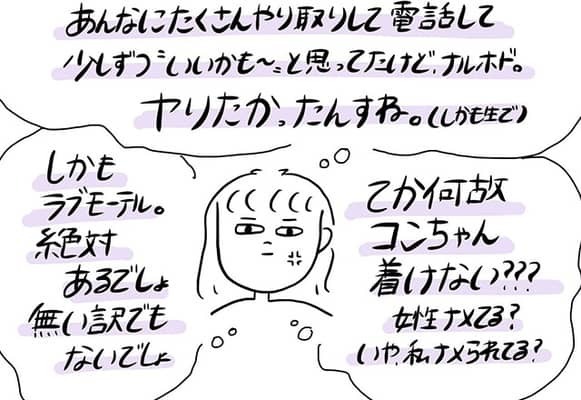 あんなにたくさんやり取りして電話して
少しずつ"いいかも〜"と思ってたけど、ナルホド。
ヤりたかったんすね。(しかも生で)
しかも
ラブモーテル。
絶対
あるでしょ
無い訳でも
ないでしょ
てか何故
コンちゃん
着けない???
女性ナメてる?
いや、私ナメられてる?